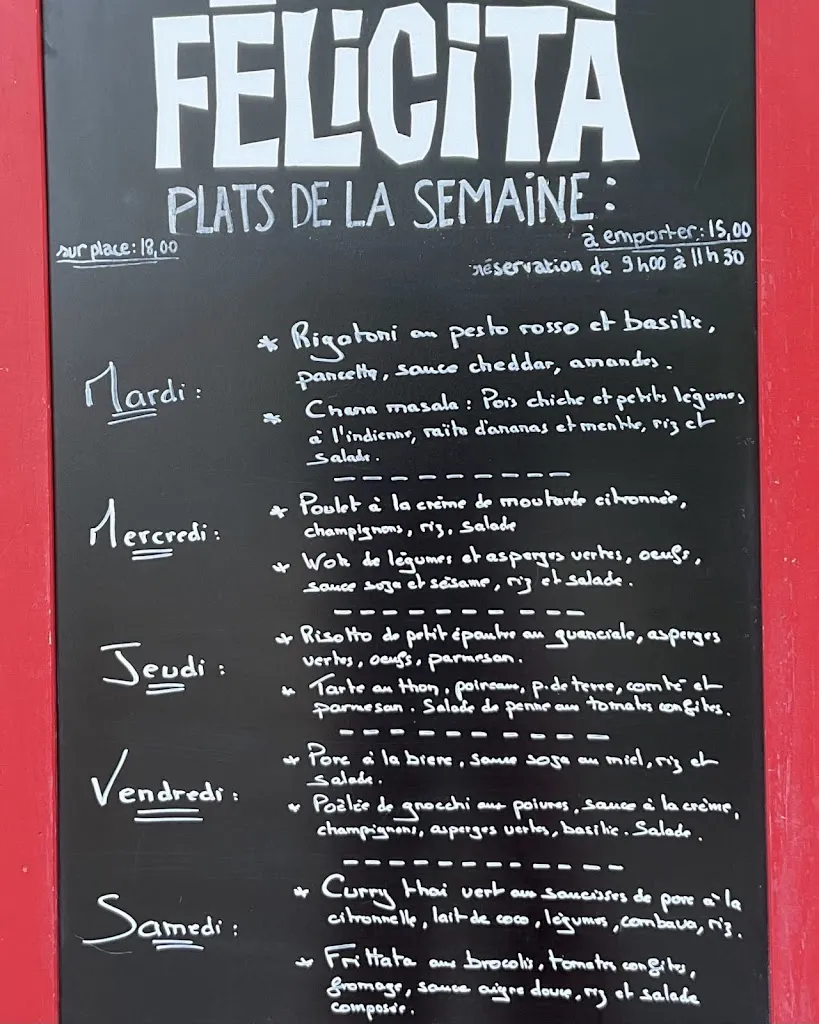 FÉLiCiTÀ
PLATS DE LA SEMAiNE :
sur place : 18,00
à emporter : 15,00
réservation de 9h00 à 11h30
* Rigatoni au pesto rosso et basilic,
pancetta, sauce cheddar, amandes.
Mardi :
* Chana masala : Pois chiche et petits légumes
à l'indienne, raïta d'ananas et menthe, riz et
salade.
* Poulet à la crème de moutarde citronnée,
champignons, riz, salade
Mercredi :
* Wok de légumes et asperges vertes, oeufs,
sauce soja et sésame, riz et salade.
* Risotto de petit épautre au guanciale, asperges
vertes, oeufs, parmesan.
Jeudi :
* Tarte au thon, poireau, p. de terre, comté et
parmesan. Salade de penne aux tomates confites.
* Porc à la biere, sauce soja au miel, riz et
salade.
Vendredi :
* Poêlée de gnocchi aux poivres, sauce à la crème,
champignons, asperges vertes, basilic. Salade.
* Curry thai vert aux saucisses de porc à la
citronnelle, lait de coco, légumes, combava, riz.
Samedi :
* Frittata aux brocolis, tomates confites,
fromage, sauce aigre douce, riz et salade
composée.